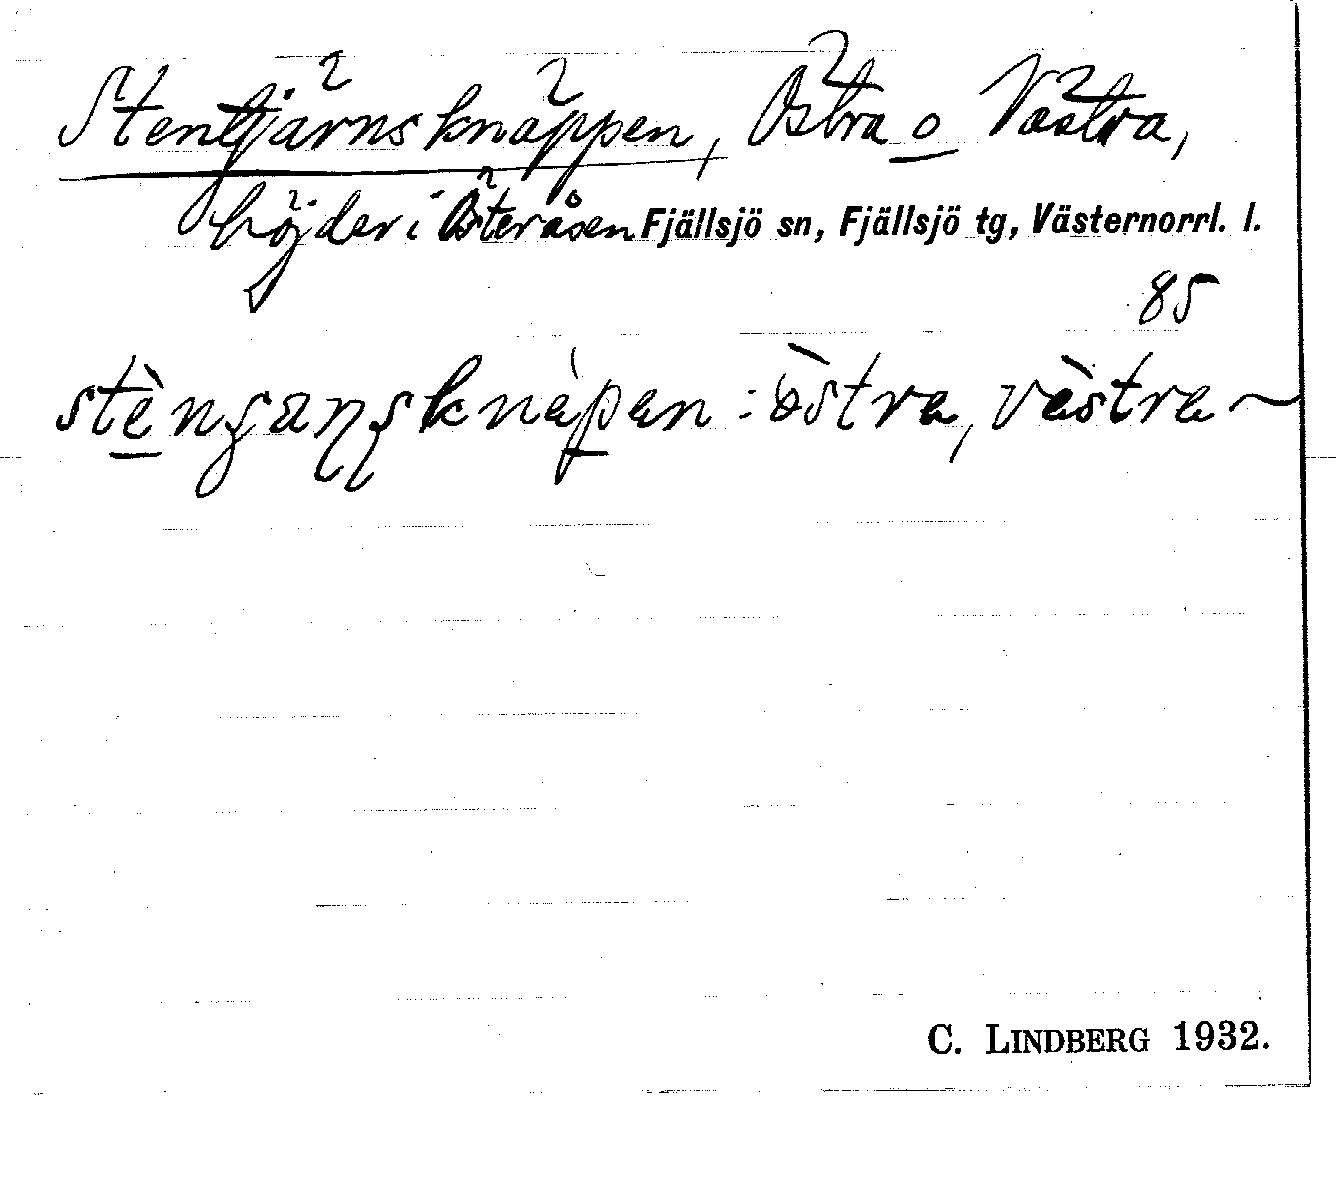 Stentjärnsknäppen, Östra o Västra,
höjder i Österåsen Fjällsjö sn, Fjällsjö tg, Västernorrl. l.
85
östra, västra ~
C. LINDBERG 1932.